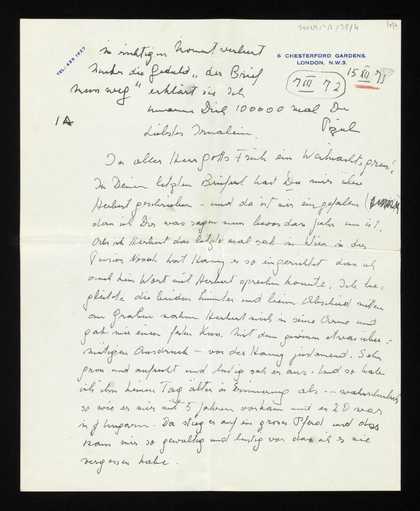 im richtigen Moment verliert
Hanker die Geduld, "der Brief
muss weg" erklärt sie Ich
umarme Dich 100000 mal Du
TEL: 435 1637
6 CHESTERFORD GARDENS,
LONDON, N.W.3.
7 III 72
15 XII 71
1A
Liebster
In aller Herrgotts Früh ein Weihnachtsgruss!
In Deinem letzten Brief hast Du mir über
Herbert geschrieben - und da ist mir eingefallen
dass ich Dir was sagen muss bevor das Jahr um ist.
Als ich Herbert das letzte mal sah in Wien in der
Pension Nossek hat Hansj es so eingerichtet dass ich
auch kein Wort mit Herbert sprechen konnte. Ich be-
gleitete die beiden hinunter und beim Abschied
am Graben nahm Herbert mich in seine Arme und
gab mir einen festen Kuss. Mit dem gewissen etwas über-
mütigen Ausdruck - vor der Hansj
gross und aufrecht und lustig sah er aus. Und so habe
ich ihn keinen Tag älter in Erinnerung als - wahrscheinlich
so wie er mir mit 5 Jahren vorkam und er 20 war
in Ungarn. Da stieg er auf ein grosses Pferd und das
kam mir so gewaltig und lustig vor dass ich es nie
vergessen habe.